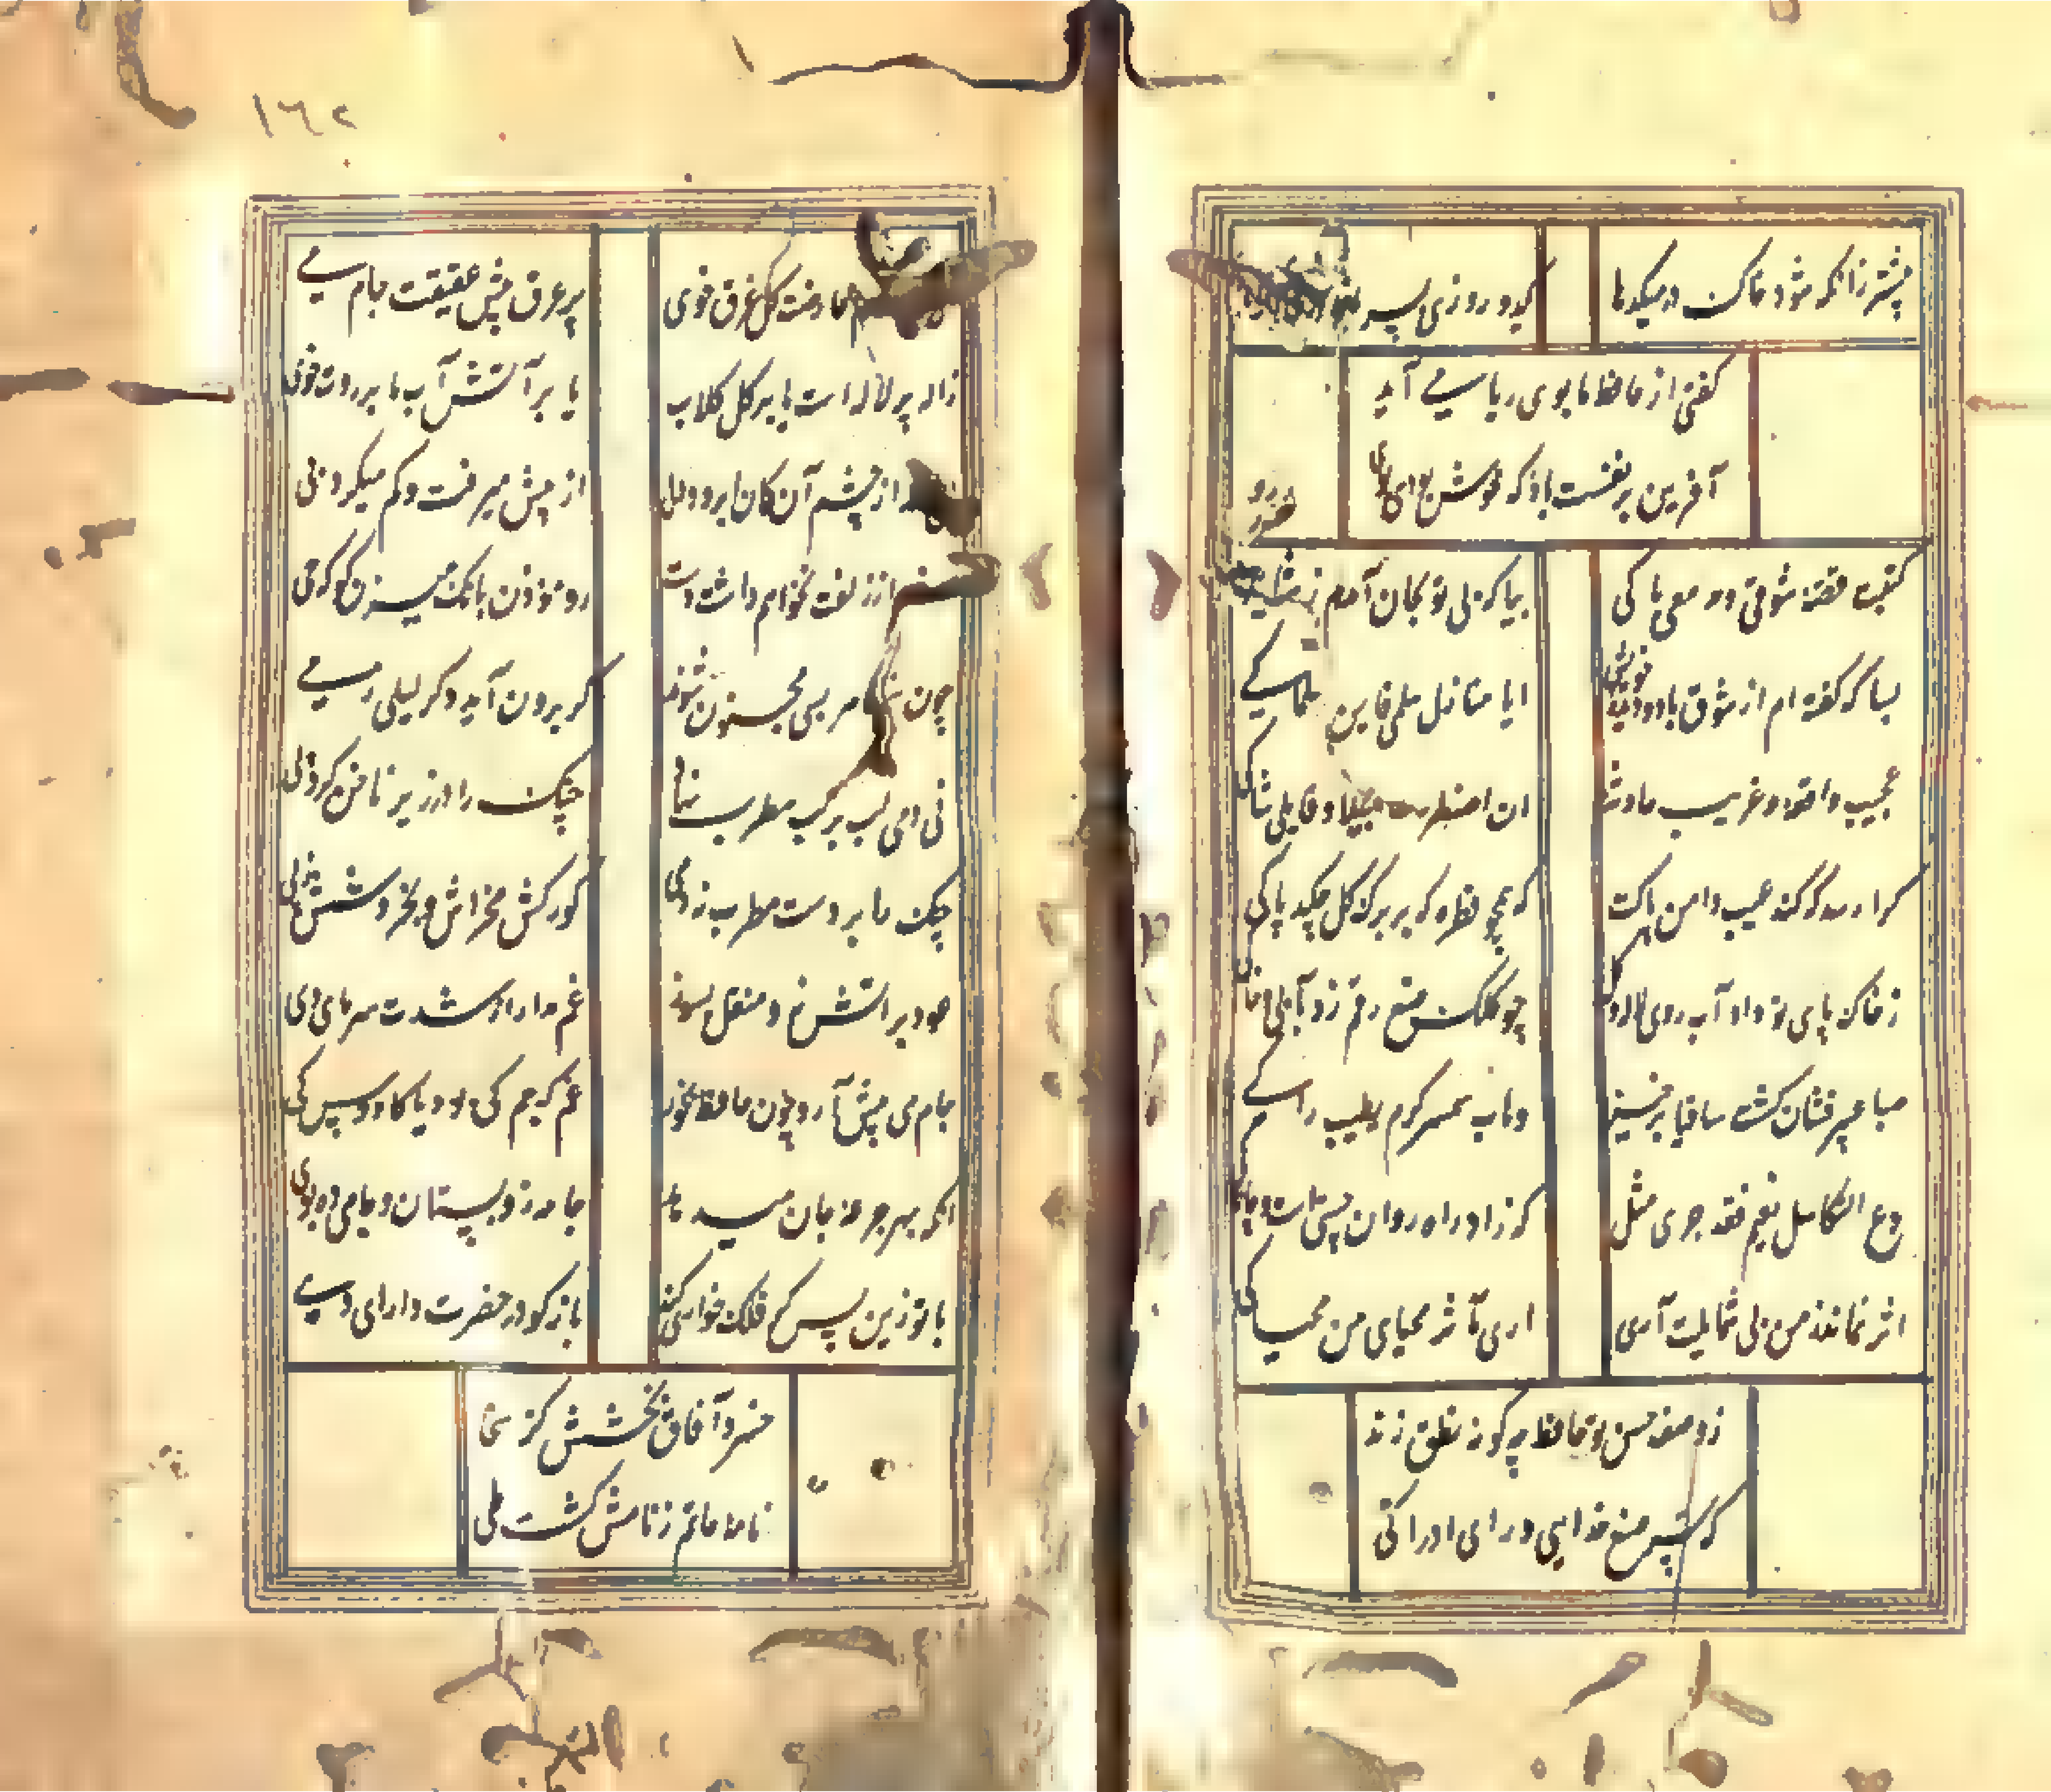 پیشتر زانکه شود خاک در میکدها
یکدو روزی بسر
گفتی از حافظ ما بوی ریا می آید
آفرین بر نفست باد که خوش بردی بوی
کتبت قصه شوقی و مدمعی باکی
بیا که بی تو بجان آمدم ز
بسا که گفته ام از شوق با دو دیده خویش
ایا منازل سلمی فاین سلماکی
عجیب واقعه و غریب حادثه
ان اصطبرت قتیلا و قاتلی شاکی
کرا رسد که کند عیب دامن پاکت
که همچو قطره که بر برک کل چکد پاکی
ز خاک پای تو داد آب روی لاله و کل
چو کلک صنع رقم زد بآبی و خاکی
صبا عبیر فشان کشت ساقیا برخیز
وهات شمسة کرم مطیب زاکی
دع التکاسل تغنم فقد جری مثل
که زاد راه روان چستی است و چالاکی
اثر نماند ز من بی شمایلت آری
اری مآثر محیای من محیاکی
ز وصف حسن تو حافظ چه کونه نطق زند
که همچو صنع خدایی ورای ادراکی
١٦٢
عارضت کل غرق خوی
پر عرق پیش عقیقت جام می
ژاله بر لاله است یا بر کل کلاب
یا بر آتش آب یا بر روت خوی
از چشم آن کمان ابرو و دل
از پیش میرفت و کم میکرد پی
از زلفت نخواهم داشت دست
رو موذن بانک میزن کو که حی
چون مر بسی مجنون شوند
کر برون آید دکر لیلی ز حی
نی دمی لب بر لب مطرب نهاد
چنک را در زیر ناخن کرد نی
چنک را بر دست مطرب نه دمی
کو رکش بخراش و بخروشش ز پی
عود بر اتش نه و منقل بسوز
غم مدار از شدت سرمای دی
جام می پیش آر و چون حافظ مخور
غم که جم کی بود یا کاوس کی
انکه بهر جرعه جان میدهد
جان از و بستان و جامی ده بوی
با تو زین پس کر فلک خواری کند
باز کو در حضرت دارای ری
خسرو آفاق بخشش کز سخا
نامه حاتم ز نامش کشت طی